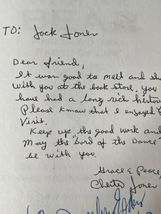 TO: Jock Jones
Dear friend,
It was good to meet and sh
with you at the book store, you
have had a long rich histor
Please know that I enjoyed
Visit.
Keep up the good work and
May the Lord of the Dance
be with you.
Grace & Peace,
Jones